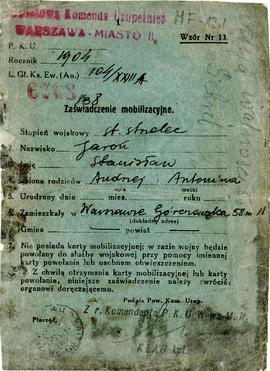 Powiatowa Komenda Uzupełnień
WARSZAWA - MIASTO II.
Wzór Nr 13.
P. K. U.
Rocznik 1904
L. Gł. Ks. Ew. (An.) 104/XXIII A
138
Zaświadczenie mobilizacyjne.
Stopień wojskowy st. strzelec
2. Nazwisko Jaroń
Stanisław
4. Imiona rodziców Andrzej Antonina
ojca matki
5. Urodzony dnia mies. roku
6. Zamieszkały w Warszawie Górczewska 58 m 18
(dokładny adres)
Gmina powiat
7. Nie posiada karty mobilizacyjnej; w razie wojny będzie
powołany do służby wojskowej przy pomocy imiennej
karty powołania lub osobnem obwieszczeniem.
Z chwilą otrzymania karty mobilizacyjnej lub karty
powołania, niniejsze zaświadczenie należy zwrócić:
organowi doręczającemu.
Podpis Pow. Kom. Uzup.
Pieczęć.
Z r. Komendanta P.K.U. W-wa-M. II